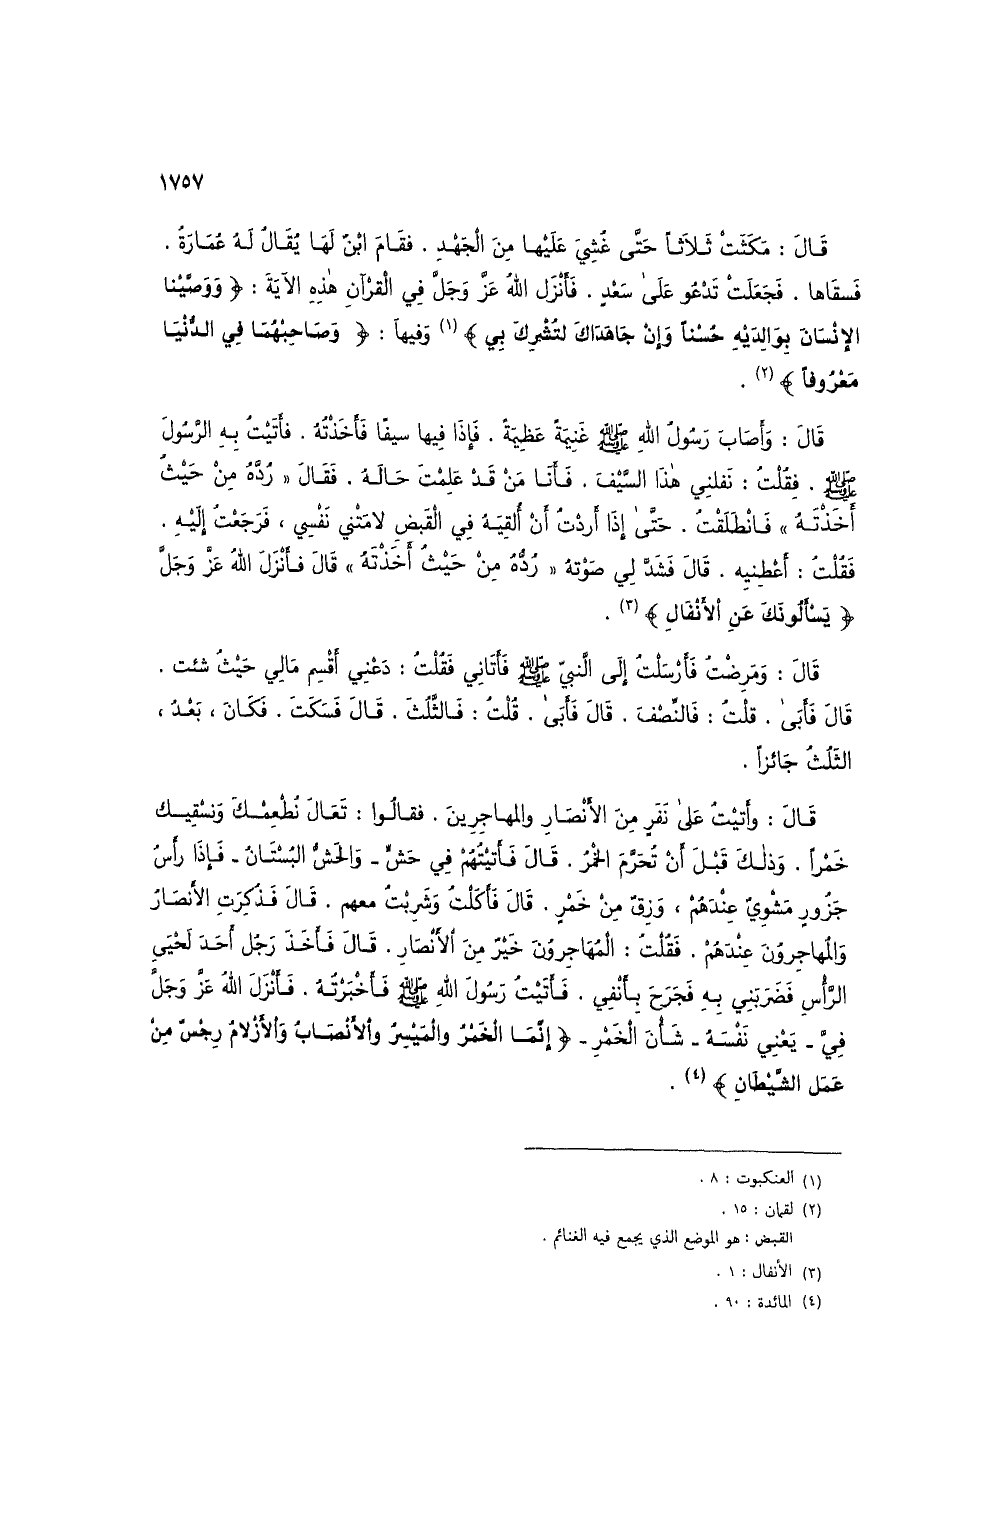 ١٧٥٧
قَالَ : مَكَثَتْ ثَلاَثاً حَتَّى غُشِيَ عَلَيْها مِنَ الْجَهْدِ . فقَامَ ابْنٌ لَهَا يُقَالُ لَهُ عُمَارَةُ .
فَسقَاها . فَجَعَلَتْ تَدْعُو عَلَىٰ سَعْدٍ . فَأَنْزَل اللهُ عَزَّ وَجَلَّ فِي الْقرْآنِ هٰذِهِ الآيَةَ : ﴿ وَوَصَّيْنا
الإِنْسَانَ بِوَالِدَيْهِ حُسْناً وَإِنْ جَاهَدَاكَ لتُشْرِكَ بِي ﴾ (١) وَفيهاَ : ﴿ وَصَاحِبْهُمَا فِي الدُّنْيَا
مَعْرُوفاً ﴾ (٢) .
قَالَ : وَأَصَابَ رَسُولُ اللهِ ﷺ غَنِيَمَةً عَظِيَمَةً . فَإِذَا فِيها سيفًا فَأَخَذْتُهُ . فأَتَيْتُ بِهِ الرَّسُولَ
ﷺ . فِقُلْتُ : نَفلنِي هٰذَا السَّيْفَ . فَأَنَا مَنْ قَدْ عَلِمْتَ حَالَهُ . فَقَالَ « رُدَّهُ مِنْ حَيْثُ
أَخَذْتَهُ » فَانْطَلَقْتُ . حَتَّىٰ إِذَا أَردْتُ أَنْ أُلقِيَهُ فِي الْقَبَضِ لامَتْنِي نَفْسِي ، فَرَجَعْتُ إِلَيْهِ .
فَقُلْتُ : أَعْطِنيِه . قَالَ فَشدَّ لِي صَوْتهُ « رُدُّهُ مِنْ حَيْثُ أَخَذْتَهُ » قَالَ فأَنْزَلَ اللهُ عَزَّ وَجَلَّ
﴿ يَسْأَلُونَكَ عَنِ ٱلأَنْفَالِ ﴾ (٣) .
قَالَ : وَمَرِضْتُ فَأَرْسَلْتُ إِلَى الَّنبِيّ ﷺ فَأَتَانِي فَقُلْتُ : دَعْنِي أَقْسِم مَالِي حَيْثُ شئت .
قَالَ فَأَبَىٰ . قلْتُ : فَالنِّصْفَ . قَالَ فَأَبَىٰ . قُلْتُ : فَالثَّلُثَ . قَالَ فَسَكَتَ . فَكَانَ ، بَعْدُ ،
الثَلُثُ جَائزاً .
قَالَ : وأَتيْتُ عَلىٰ نَفَرٍ مِنَ الأَنْصَارِ والمهاجرِينَ . فقالُوا : تَعَالَ نُطْعِمْكَ وَنسْقِيك
خَمْراً . وَذلٰكَ قَبْلَ أَنْ تُحَرَّمَ الخمْرُ . قَالَ فَأَتيْتُهُمْ فِي حَشٍّ - وَالحَشُّ البُسْتَانُ - فَإِذَا رأَسُ
جَزُورٍ مَشْوِيّ عِنْدَهُمْ ، وَزِقٌ مِنْ خَمْرٍ . قَالَ فَأَكَلْتُ وَشَرِبْتُ معهم . قَالَ فَذُكِرَتِ الأَنصَارُ
وَالُمهاجرُونَ عِنْدَهُمْ . فَقُلْتُ : الْمُهَاجِرُونَ خَيْرٌ مِنَ ٱلأَنْصَارِ . قَالَ فَأَخَذَ رَجُل أَحَدَ لَحْيَيِ
الرَّأْسِ فَضَرَبَنِي بِهِ فَجَرَحَ بِأَنْفِي . فَأَتَيْتُ رَسُولَ اللهِ ﷺ فَأَخْبَرْتُهُ . فَأَنْزَلَ اللهُ عَزَّ وَجَلَّ
فِيَّ - يَعْنِي نَفْسَهُ - شَأْنَ الْخَمْرِ - ﴿ إِنَّمَا الْخَمْرُ والْمَيْسِرُ وٱلأَنْصَابُ وَٱلأَزْلامُ رِجْسٌ مِنْ
عَمَل الشَّيْطَانِ ﴾ (٤) .
(١) العنكبوت : ٨ .
(٢) لقمان : ١٥ .
القبض : هو الموضع الذي يجمع فيه الغنائم .
(٣) الأنفال : ١ .
(٤) المائدة : ٩٠ .